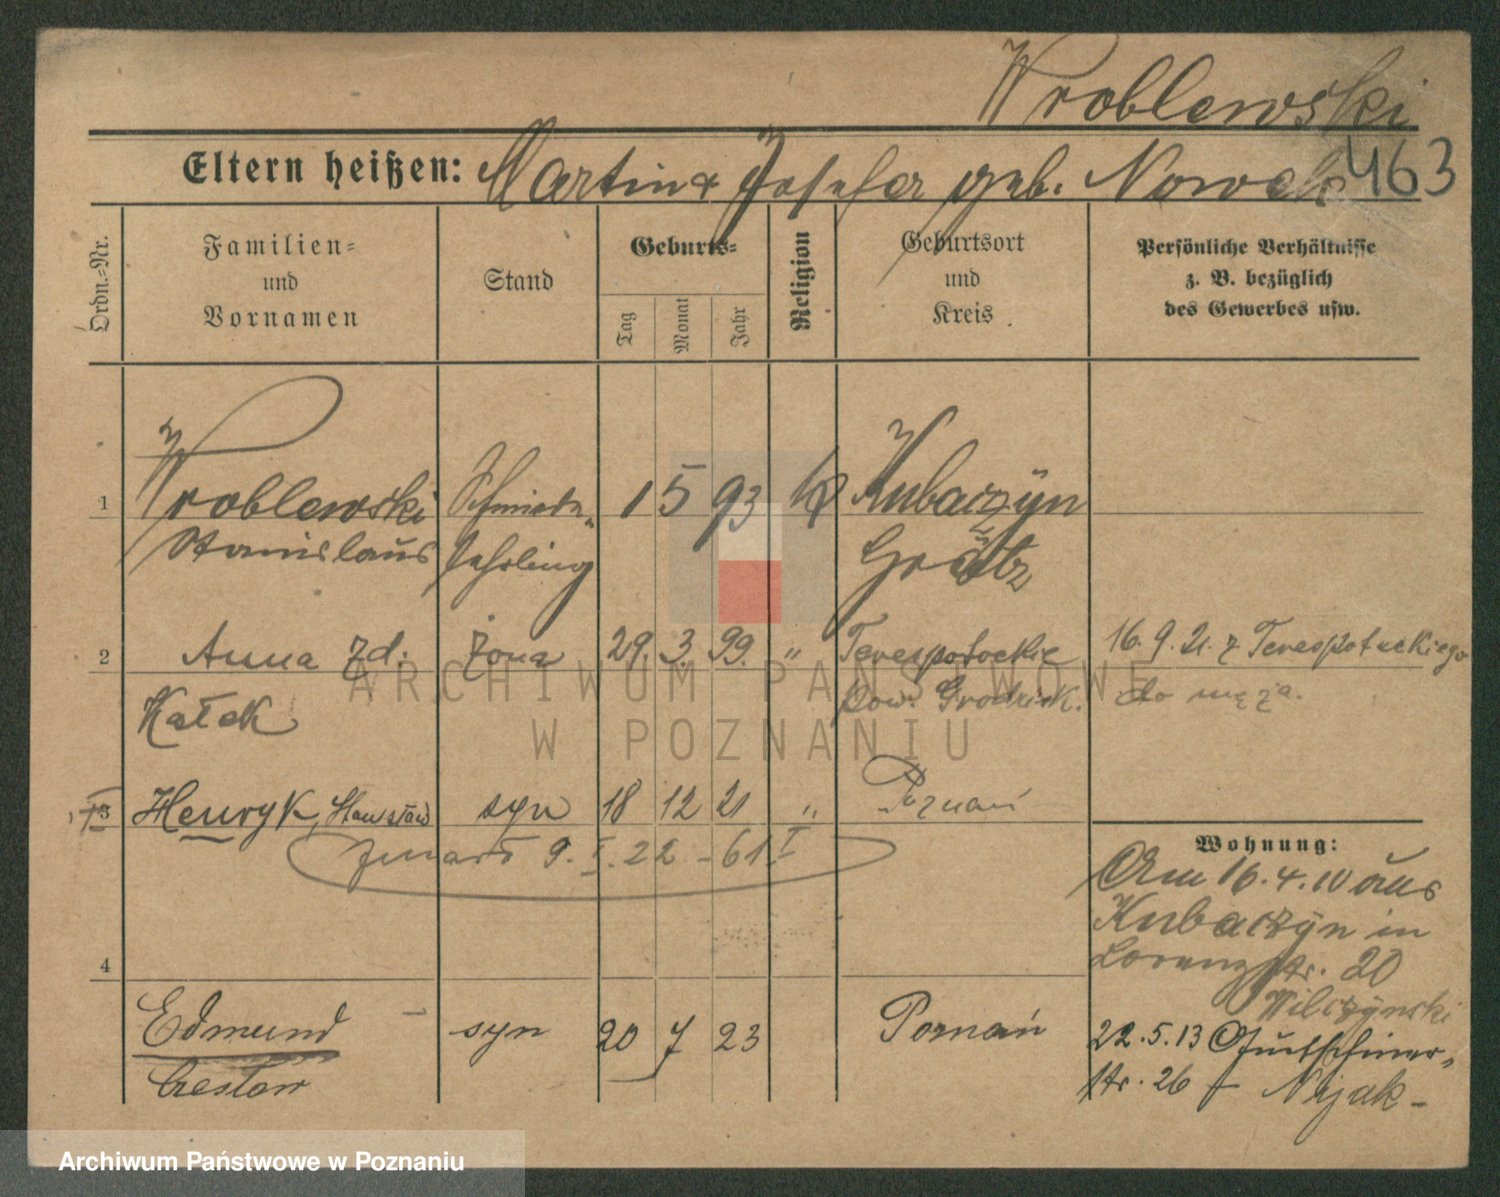 Wroblewski
Eltern heißen: Martin & Josefa geb. Nowak 463
Ordn.=Nr.
Familien=
und
Vornamen
Stand
Geburts=
Tag
Monat
Jahr
Religion
Geburtsort
und
Kreis
Persönliche Verhältnisse
z. B. bezüglich
des Gewerbes usw.
1 Wroblewski Schmiede- 1 5 93 k Kubaczyn
Stanislaus Lehrling Grätz
2 Anna zd. żona 29. 3. 99. " Terespotockie 16. 9. 21. z Terespotockiego
Kałek Pow. Grodzisk. do męża.
3 Henryk, Stanisław syn 18 12 21 " Poznań
zmarł 9. I. 22 - 61 I
Wohnung:
Am 16.4.10 aus
Kubaczyn in
Lorenzstr. 20
Wilczynski
4
Edmund syn 20 7 23 Poznań 22.5.13 Gutschiner-
Czesław str. 26 Nyjak-
ARCHIWUM PAŃSTWOWE
W POZNANIU
Archiwum Państwowe w Poznaniu